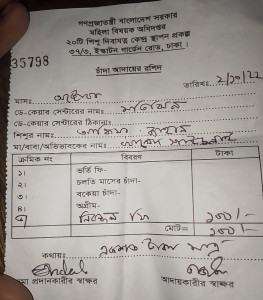 গণপ্রজাতন্ত্রী বাংলাদেশ সরকার
মহিলা বিষয়ক অধিদপ্তর
২০টি শিশু দিবাযত্ন কেন্দ্র স্থাপন প্রকল্প
৩৭/৩, ইস্কাটন গার্ডেন রোড, ঢাকা।
35798
চাঁদা আদায়ের রশিদ
তারিখঃ ২/১০/২২
মাসঃ
ডে-কেয়ার সেন্টারের নামঃ
ডে-কেয়ার সেন্টারের ঠিকানাঃ
শিশুর নামঃ
মা/বাবা/অভিভাবকের নামঃ
ক্রমিক নং বিবরণ টাকা
১। ভর্তি ফি-
২। চলতি মাসের চাঁদা-
৩। বকেয়া চাঁদা-
৪। অগ্রীম-
৫ ১০০/-
মোট= ১০০/-
কথায়ঃ একশত টাকা মাত্র
চাঁদা প্রদানকারীর স্বাক্ষর আদায়কারীর স্বাক্ষর